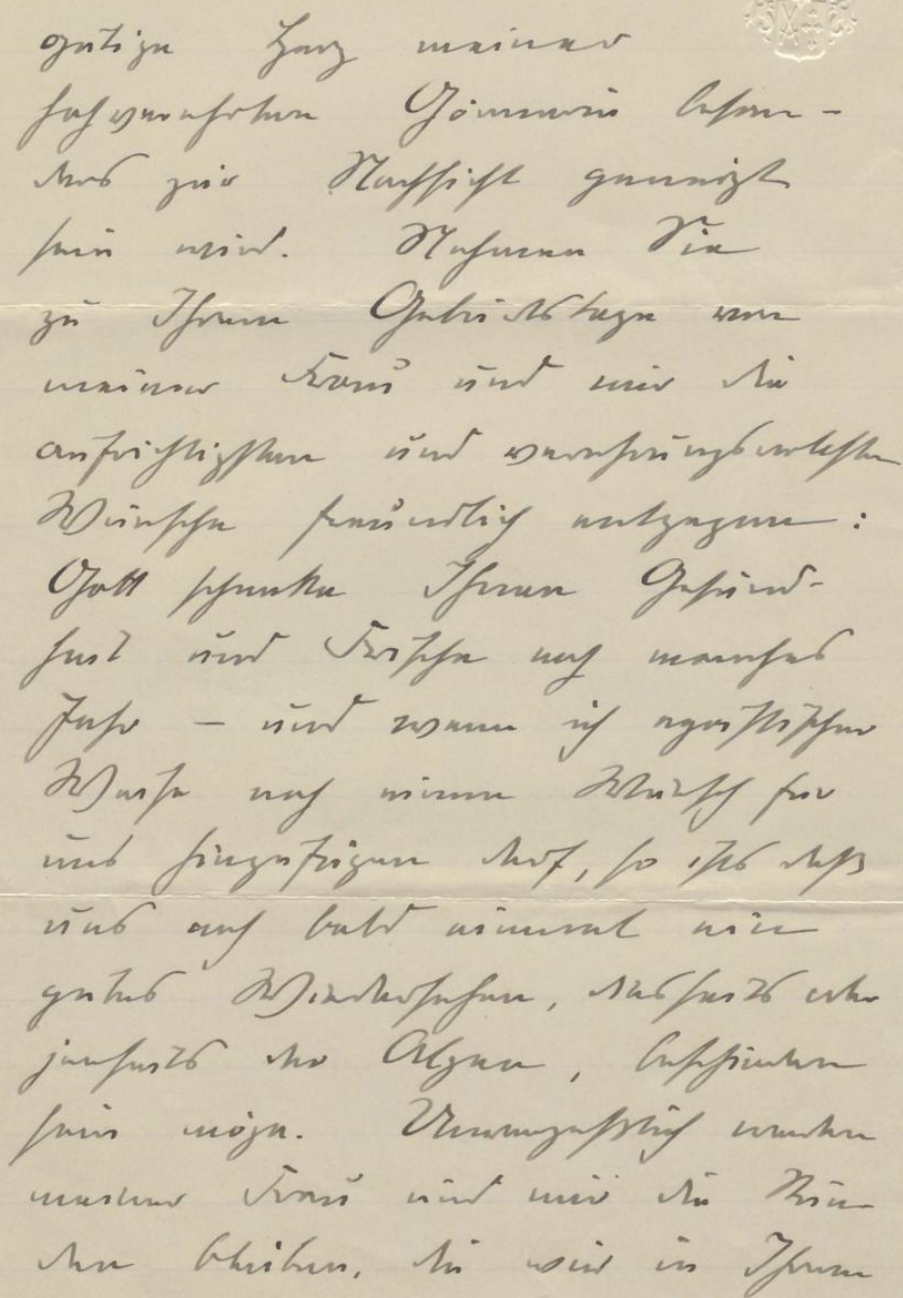 gütige Herz meiner
hochverehrten Gönnerin beson-
ders zur Nachsicht geneigt
sein wird. Nehmen Sie
zu Ihrem Geburtstage von
meiner Frau und mir die
aufrichtigsten und verehrungsvollsten
Wünsche freundlich entgegen:
Gott schenke Ihnen Gesund-
heit und Frische noch manches
Jahr – und wenn ich egoistischer
Weise noch einen Wunsch für
uns hinzufügen darf, so ists daß
uns auch bald einmal ein
gutes Wiedersehen, diesseits oder
jenseits der Alpen, beschieden
sein möge. Unvergeßlich werden
meiner Frau und mir die Stun-
den bleiben, die wir in Ihrem